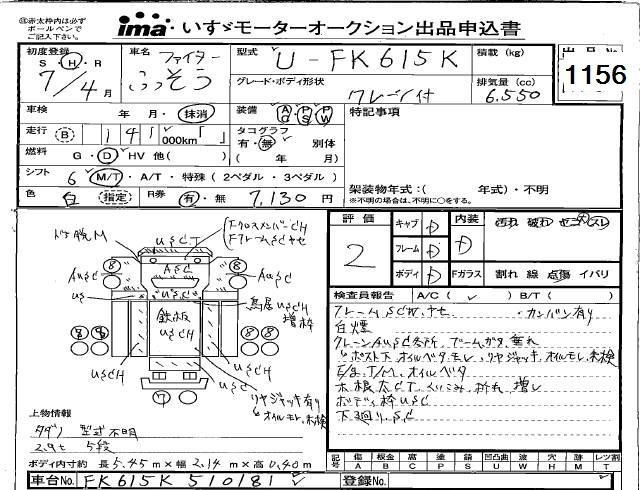 ㊟赤太枠内は必ず
ボールペンで
ご記入下さい。
ima いすゞモーターオークション出品申込書
初度登録 S・H・R 7/4月
車名 ファイター ふそう
型式 U-FK615K
積載 (kg)
出品No
1156
グレード・ボディ形状 クレーン付
排気量 (cc) 6.550
車検 年・月・抹消
装備 AC PS PW
特記事項
走行 B 141 000km
タコグラフ 有・無 別体
( 年 月)
燃料 G・D・HV 他( )
シフト 6 M/T・A/T・特殊(2ペダル・3ペダル)
架装物年式:( 年式)・不明
※不明の場合は、不明に○をする。
色 白 指定 R券 有・無 7,130円
評価 2
キャブ D
フレーム D
ボディ D
内装 D
汚れ 破れ ヤニ大 スレ
Fガラス 割れ 線 点傷 イバリ
ドア脱M
USCT
Fクロスメンバー CH
FフレームSCヤセ
8 8
AUSC AUSC AUSC
us "USC"
鳥居USCH
増枠
鉄板
USCH
8 8 8 8
USCH USCH
USC USC
7
リヤジャッキ有り
オイルモレ、未検
検査員報告 A/C( ✓ ) B/T( )
フレームSCW、ヤセ ・カンバン有り
白煙
クレーンAUSC各所、ブームガタ、垂れ
〃ポスト下オイルベタ、モレ、リヤジャッキ、オイルモレ、未検
E/g、T/M、オイルベタ
木根太CT、くいこみ、折れ、増し
ボディ枠USC
下廻り、SC
上物情報
タダノ 型式不明
2.9t 5段
ボディ内寸約 長5.45m×幅2.14m×高0.40m
記号 傷A 凹B 腐C 塗P 錆S 凹凸曲U 波W 穴H 跡M レツ割T
車台No. FK615K 510181
登録No.